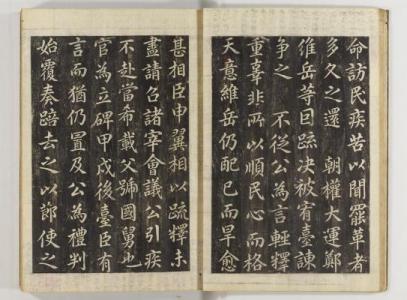 命訪民疾苦以聞罷革者
多久之還 朝權大運鄭
維岳等因疏決被宥臺諫
爭之 不從公為言輕釋
重辜非所以順民心而格
天意維岳仍配已而旱愈
甚相臣申翼相以疏釋未
盡請召諸宰會議公引疾
不赴當希載父號國舅也
官為立碑甲戌後臺臣有
言而猶仍置及公為禮判
始覆奏踣去之以節使之